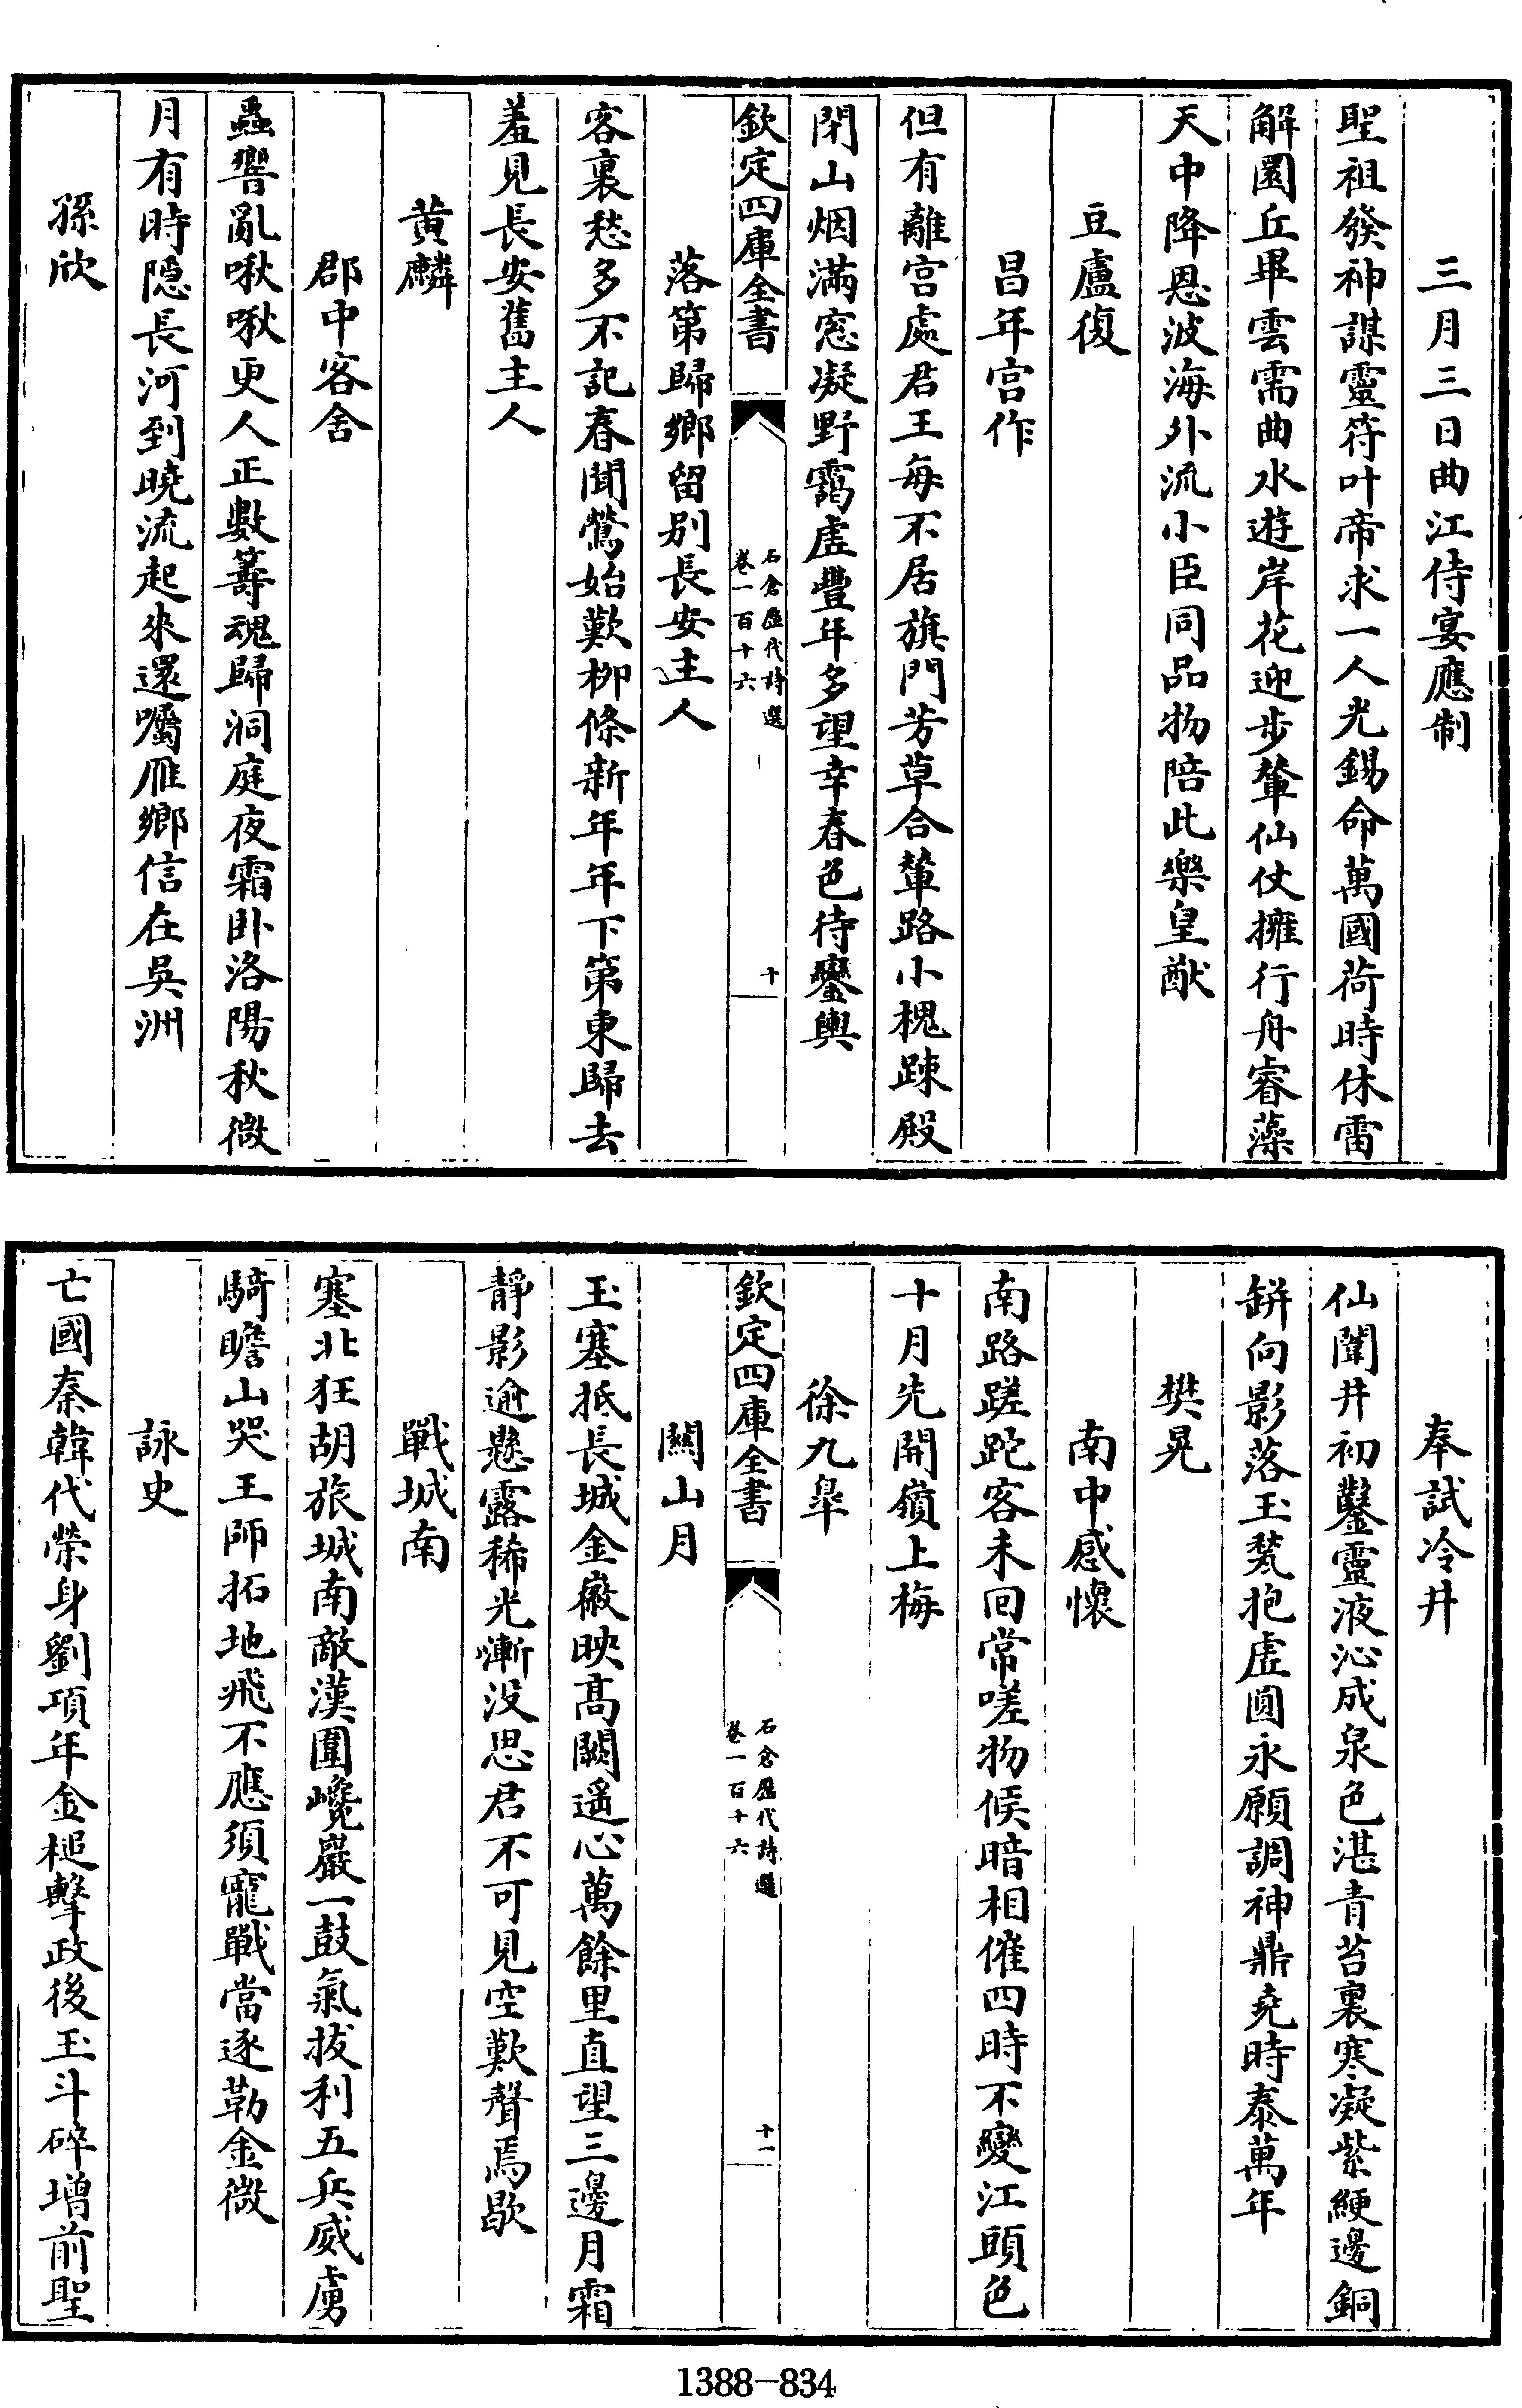 三月三日曲江侍宴應制
聖祖發神謀靈符叶帝求一人光錫命萬國荷時休雷
解圜丘畢雲需曲水遊岸花迎步輦仙仗擁行舟睿藻
天中降恩波海外流小臣同品物陪此樂皇猷
豆盧復
昌年宫作
但有離宫處君王每不居旗門芳草合輦路小槐踈殿
閉山烟滿窓凝野靄虚豐年多望幸春色待鑾輿
欽定四庫全書
石倉歷代詩選
卷一百十六
十
落第歸鄉留别長安主人
客裏愁多不記春聞鶯始歎柳條新年年下第東歸去
羞見長安舊主人
黄麟
郡中客舍
蟲響亂啾啾更人正數籌魂歸洞庭夜霜卧洛陽秋微
月有時隠長河到曉流起來還囑雁鄉信在吳洲
孫欣
奉試冷井
仙闈井初鑿靈液沁成泉色湛青苔裏寒凝紫綆邊銅
缾向影落玉甃抱虚圓永願調神鼎堯時泰萬年
樊晃
南中感懷
南路蹉跎客未回常嗟物候暗相催四時不變江頭色
十月先開嶺上梅
徐九皐
關山月
玉塞抵長城金徽映髙闕遥心萬餘里直望三邊月霜
靜影逾懸露稀光漸没思君不可見空歎聲焉歇
戰城南
塞北狂胡旅城南敵漢圍巉巖一鼓氣拔利五兵威虜
騎瞻山哭王師拓地飛不應須寵戰當逐勒金微
詠史
亡國秦韓代榮身劉項年金槌擊政後玉斗碎增前聖
1388-834